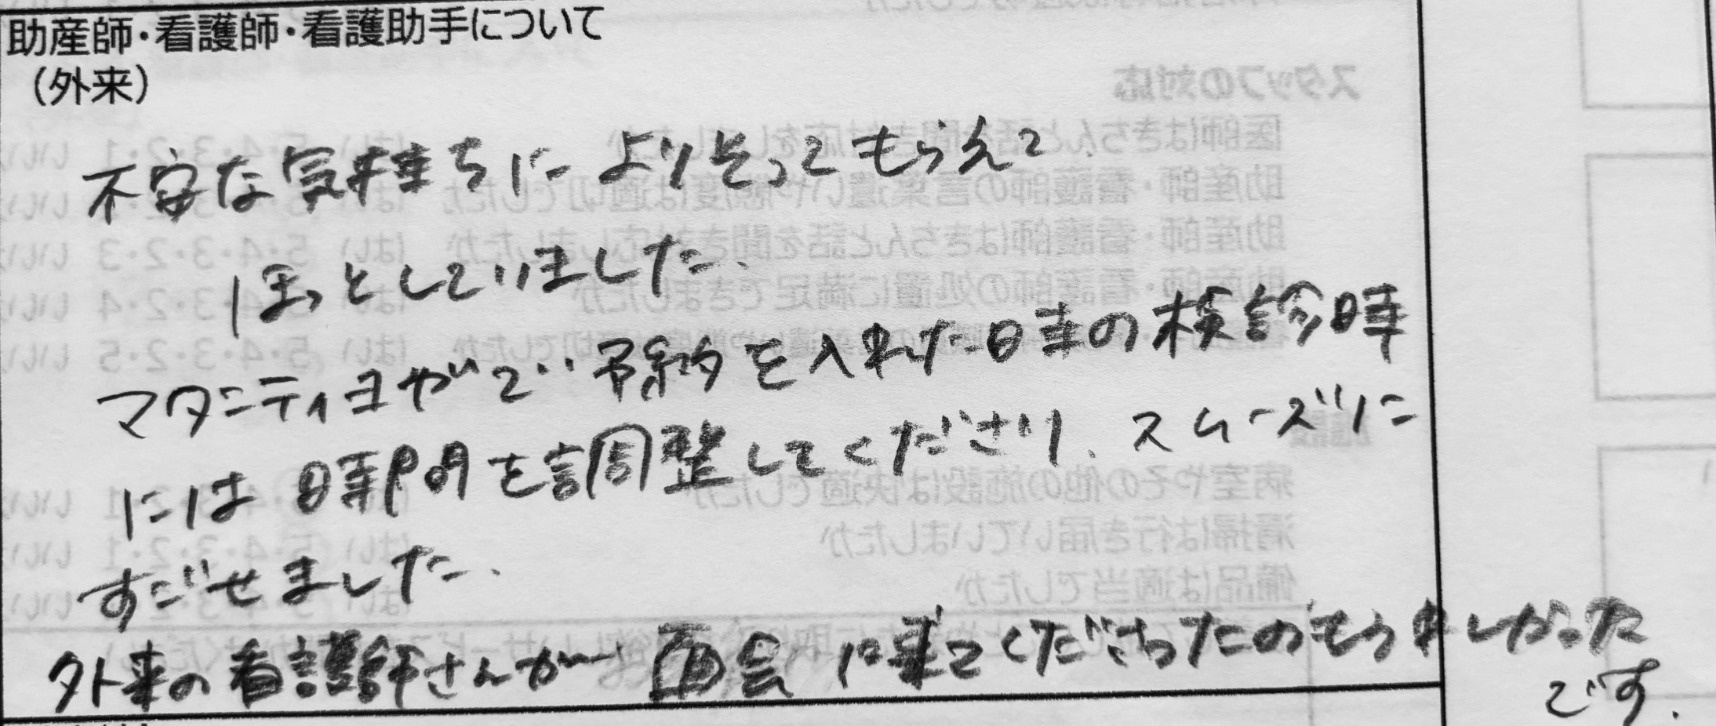 助産師・看護師・看護助手について
（外来）
不安な気持ちによりそってもらえて
ほっとしていました。
マタニティヨガで、予約を入れた日時の検診時
には時間を調整してくださり、スムーズに
すごせました。
外来の看護師さんが面会に来てくださったのもうれしかった
です。